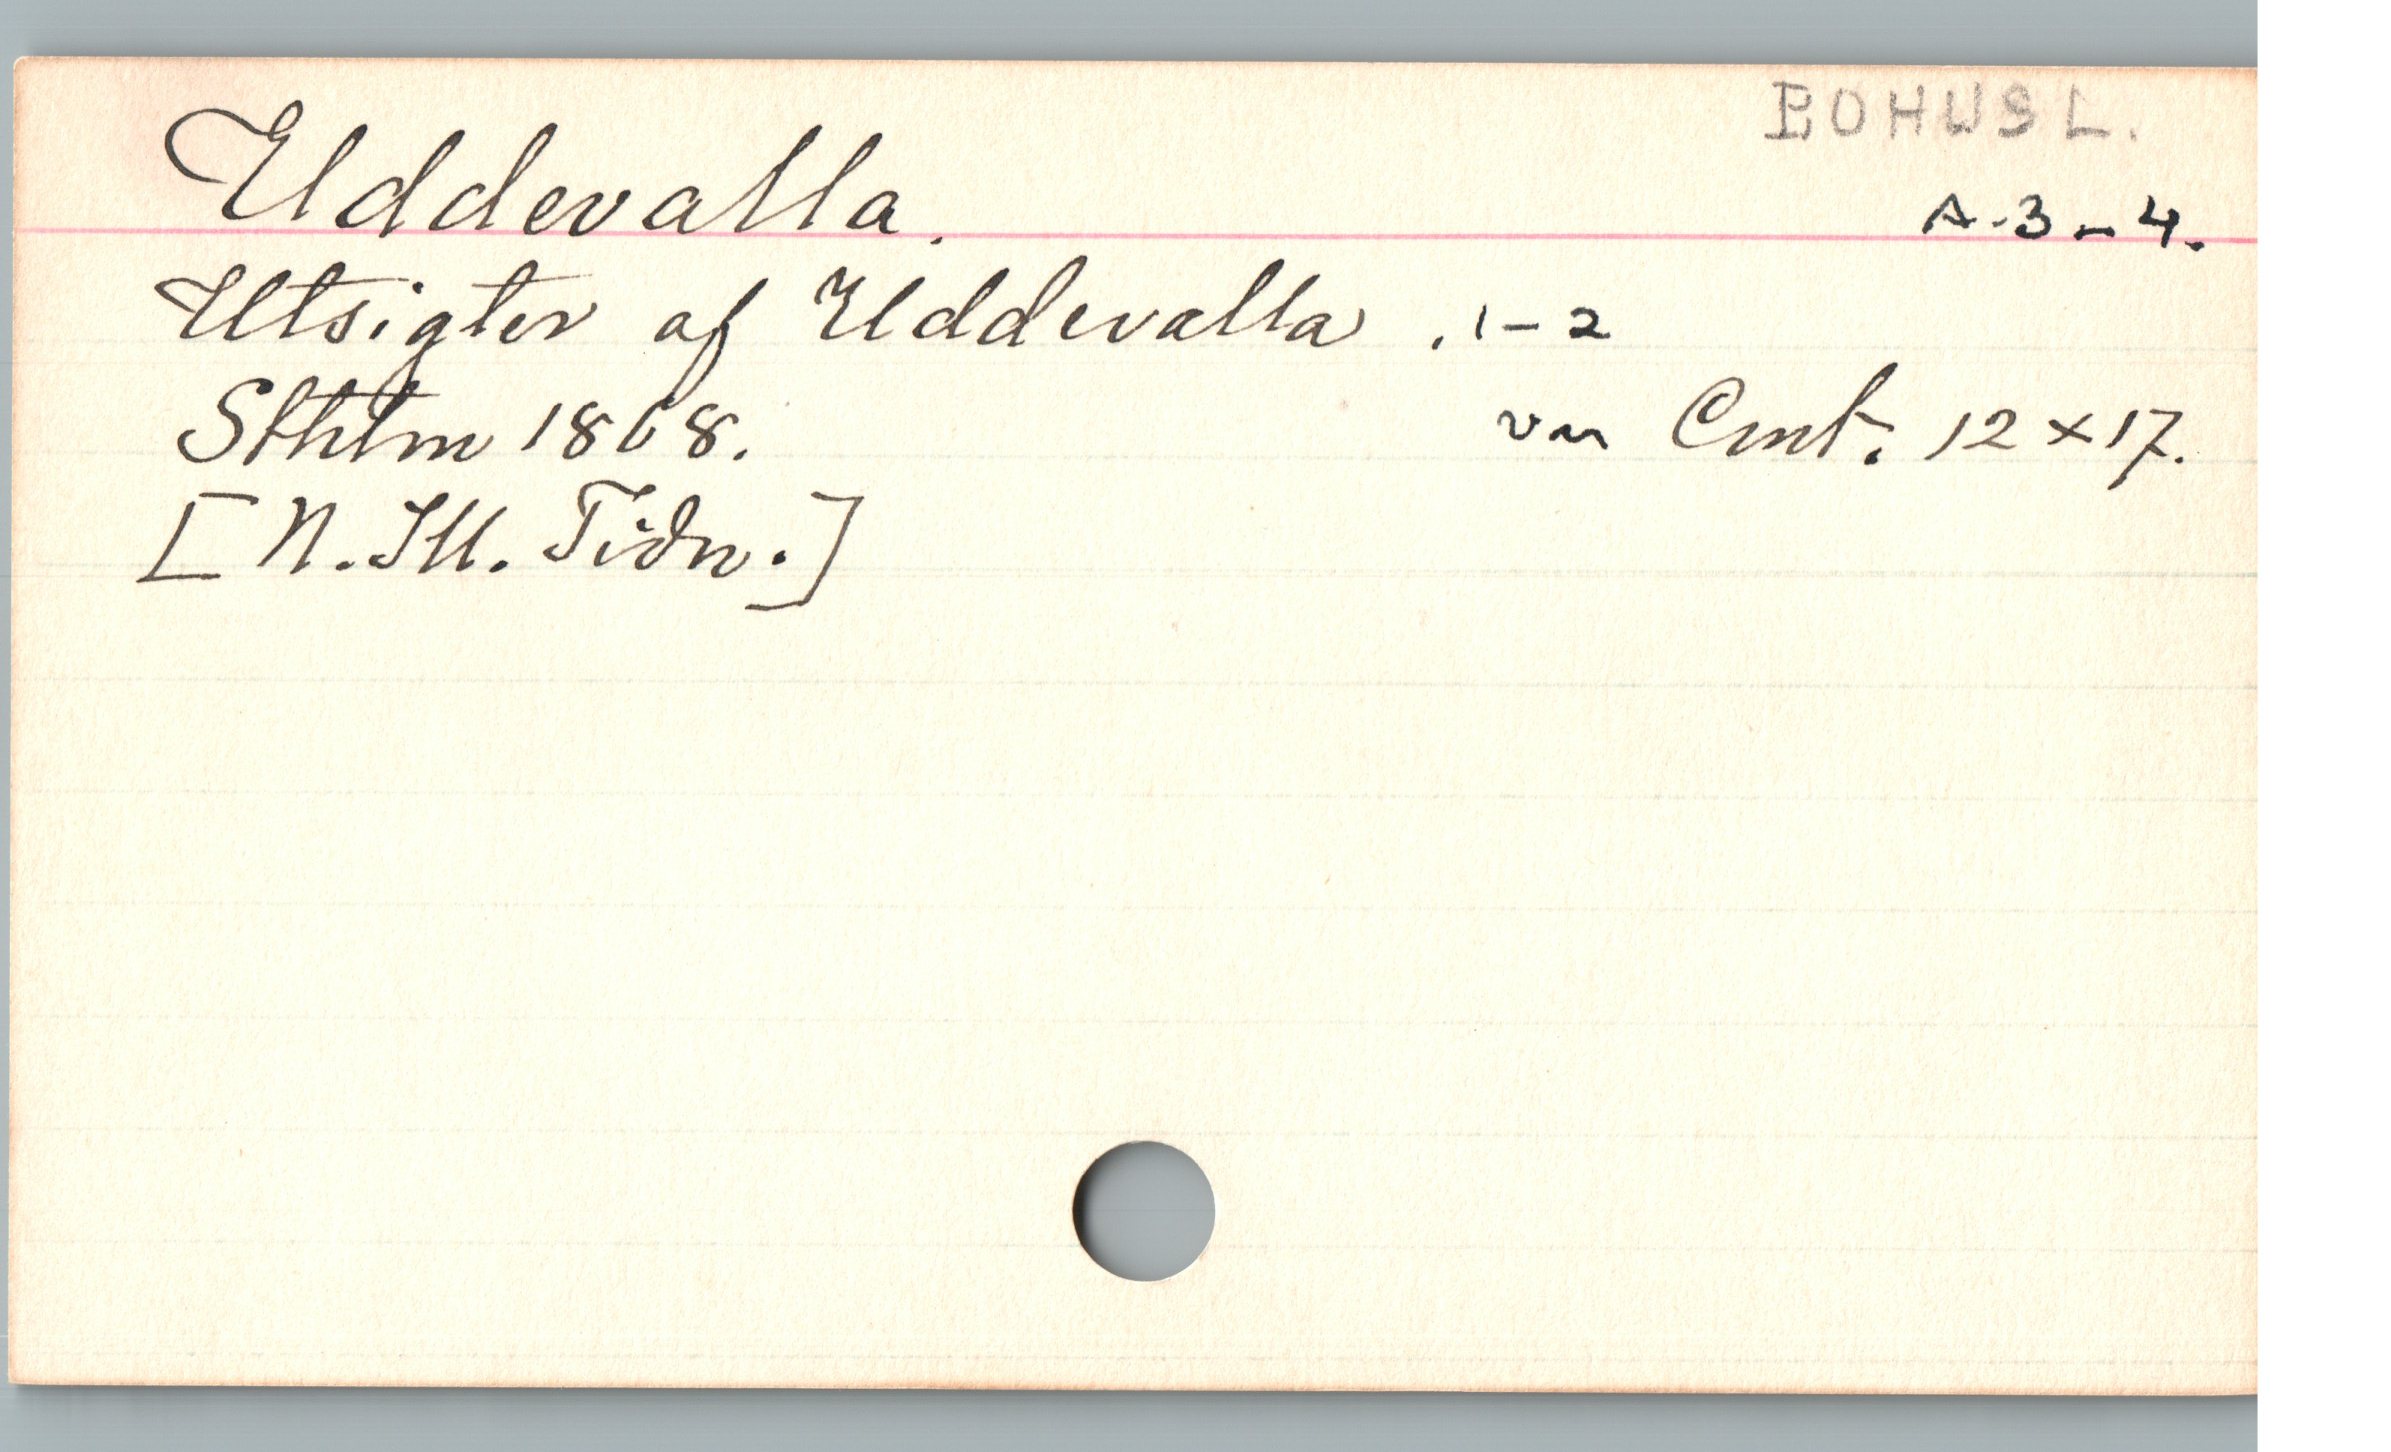 BOHUSL.
Uddevalla.
A.3-4.
Utsigter af Uddevalla. 1-2
Sthlm 1868. Cmt. 12 x 17.
[N. Ill. Tidn.]